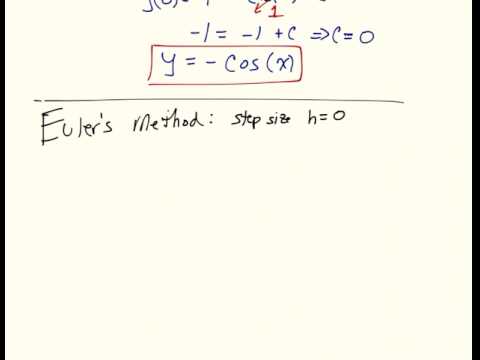 1
-1 = -1 + c ⇒ c = 0
y = - cos(x)
Euler's Method: step size h = 0